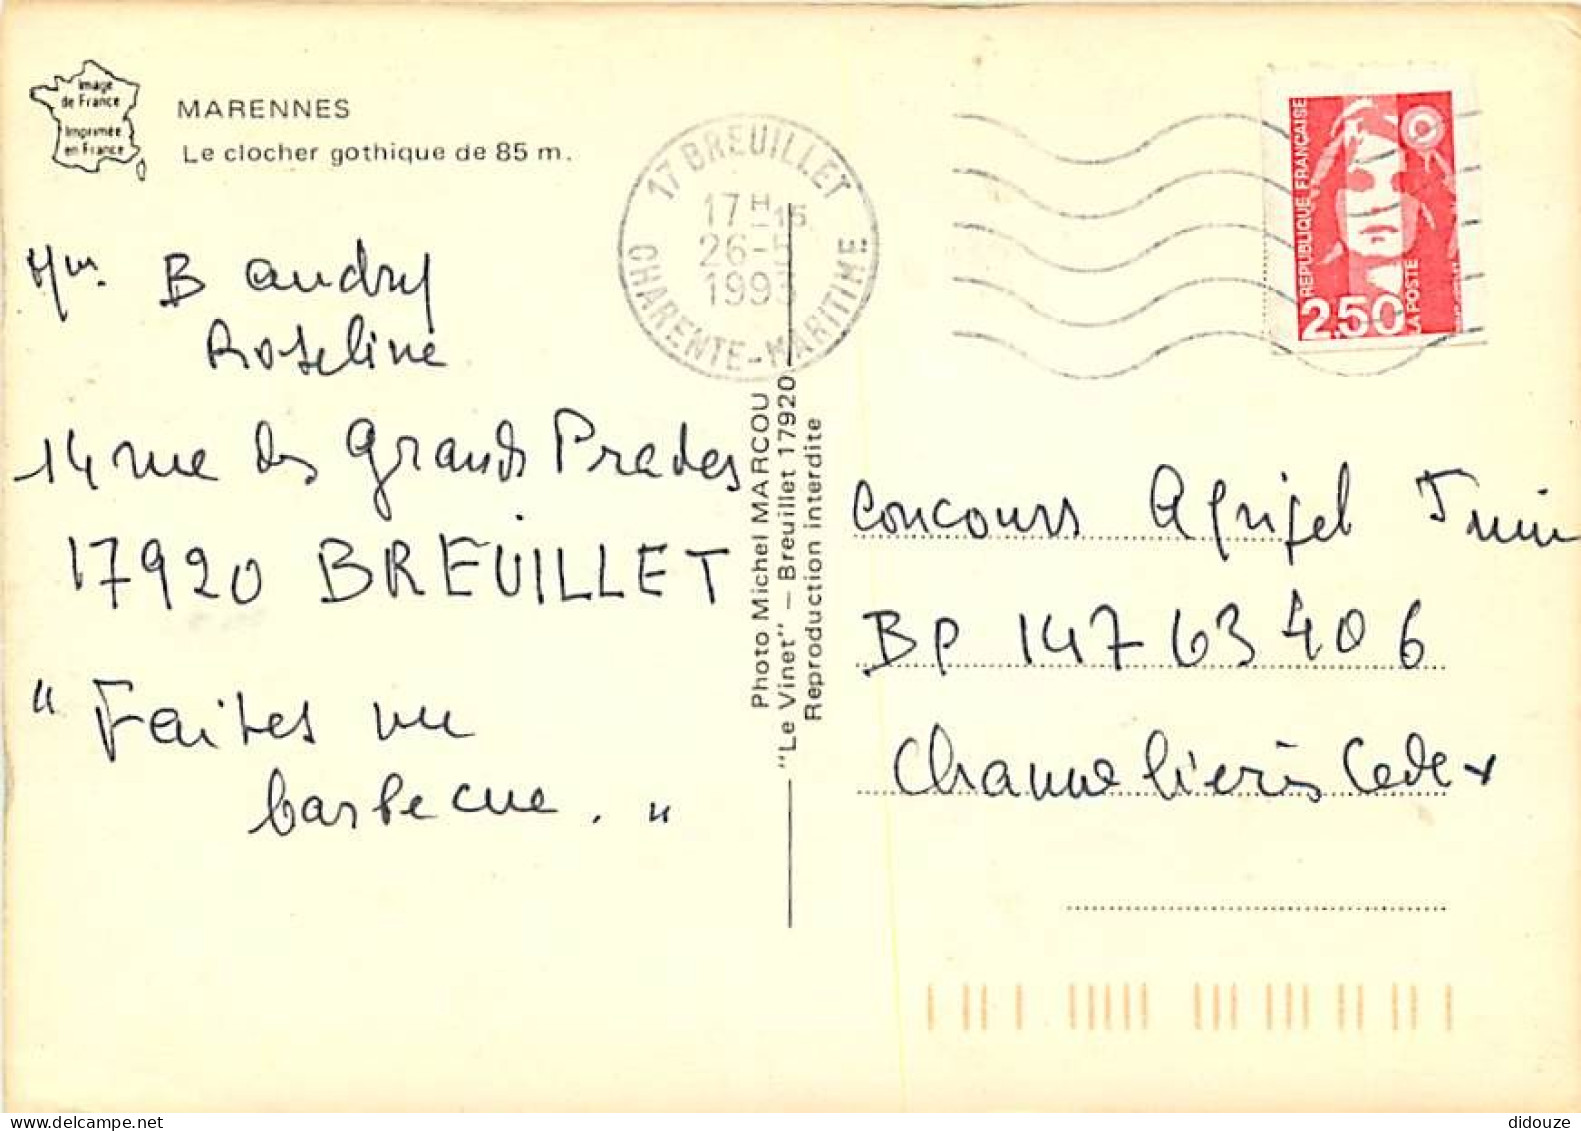 Image
de France
Imprimée
en France
MARENNES
Le clocher gothique de 85 m.
17 BREUILLET
17H15
26-5
1993
CHARENTE-MARITIME
REPUBLIQUE FRANÇAISE
2,50
LA POSTE
Mm. Baudry
Roseline
14 rue des Grands Prades
17920 BREUILLET
"Faites un
barbecue."
Photo Michel MARCOU
"Le Vinet" — Breuillet 17920
Reproduction interdite
Concours Agrigel Juin
BP 147 63406
Chamalières Cedex
didouze